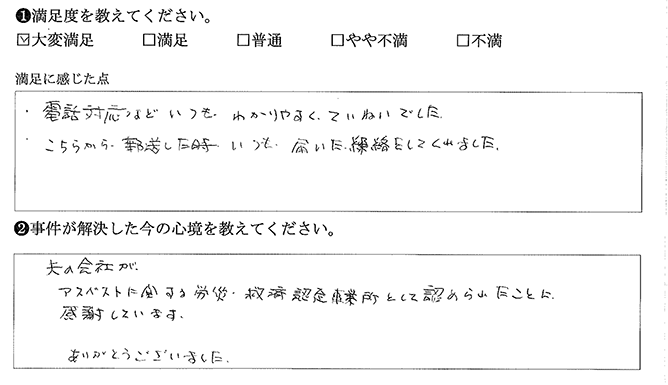 ❶満足度を教えてください。
☑大変満足 □満足 □普通 □やや不満 □不満
満足に感じた点
・電話対応などいつも、わかりやすく、ていねいでした。
・こちらから郵送した時いつも届いた連絡をしてくれました。
❷事件が解決した今の心境を教えてください。
夫の会社が、
アスベストに関する労災・救済認定事業所として認められたことに、
感謝しています。
ありがとうございました。